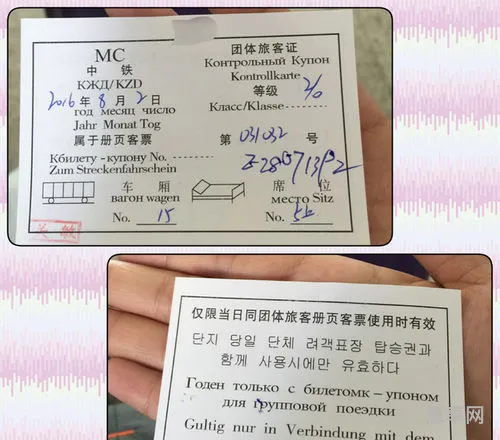 MC
中 铁
КЖД/KZD
2016 年 8 月 2 日
год месяц число
Jahr Monat Tog
属于册页客票
Кбилету - купону No.
Zum Streckenfahrschein
团体旅客证
Контрольный Купон
Kontrollkarte
等级
Класс/Klasse
第 031032 号
车 厢
вагон wagen
No. 15
席 位
место Sitz
No.
仅限当日同团体旅客册页客票使用时有效
단지 당일 단체 려객표장 탑승권과
함께 사용시에만 유효하다
Годен только с билетомк - упоном
для групповой поездки
Gultig nur in Verbindung mit dem